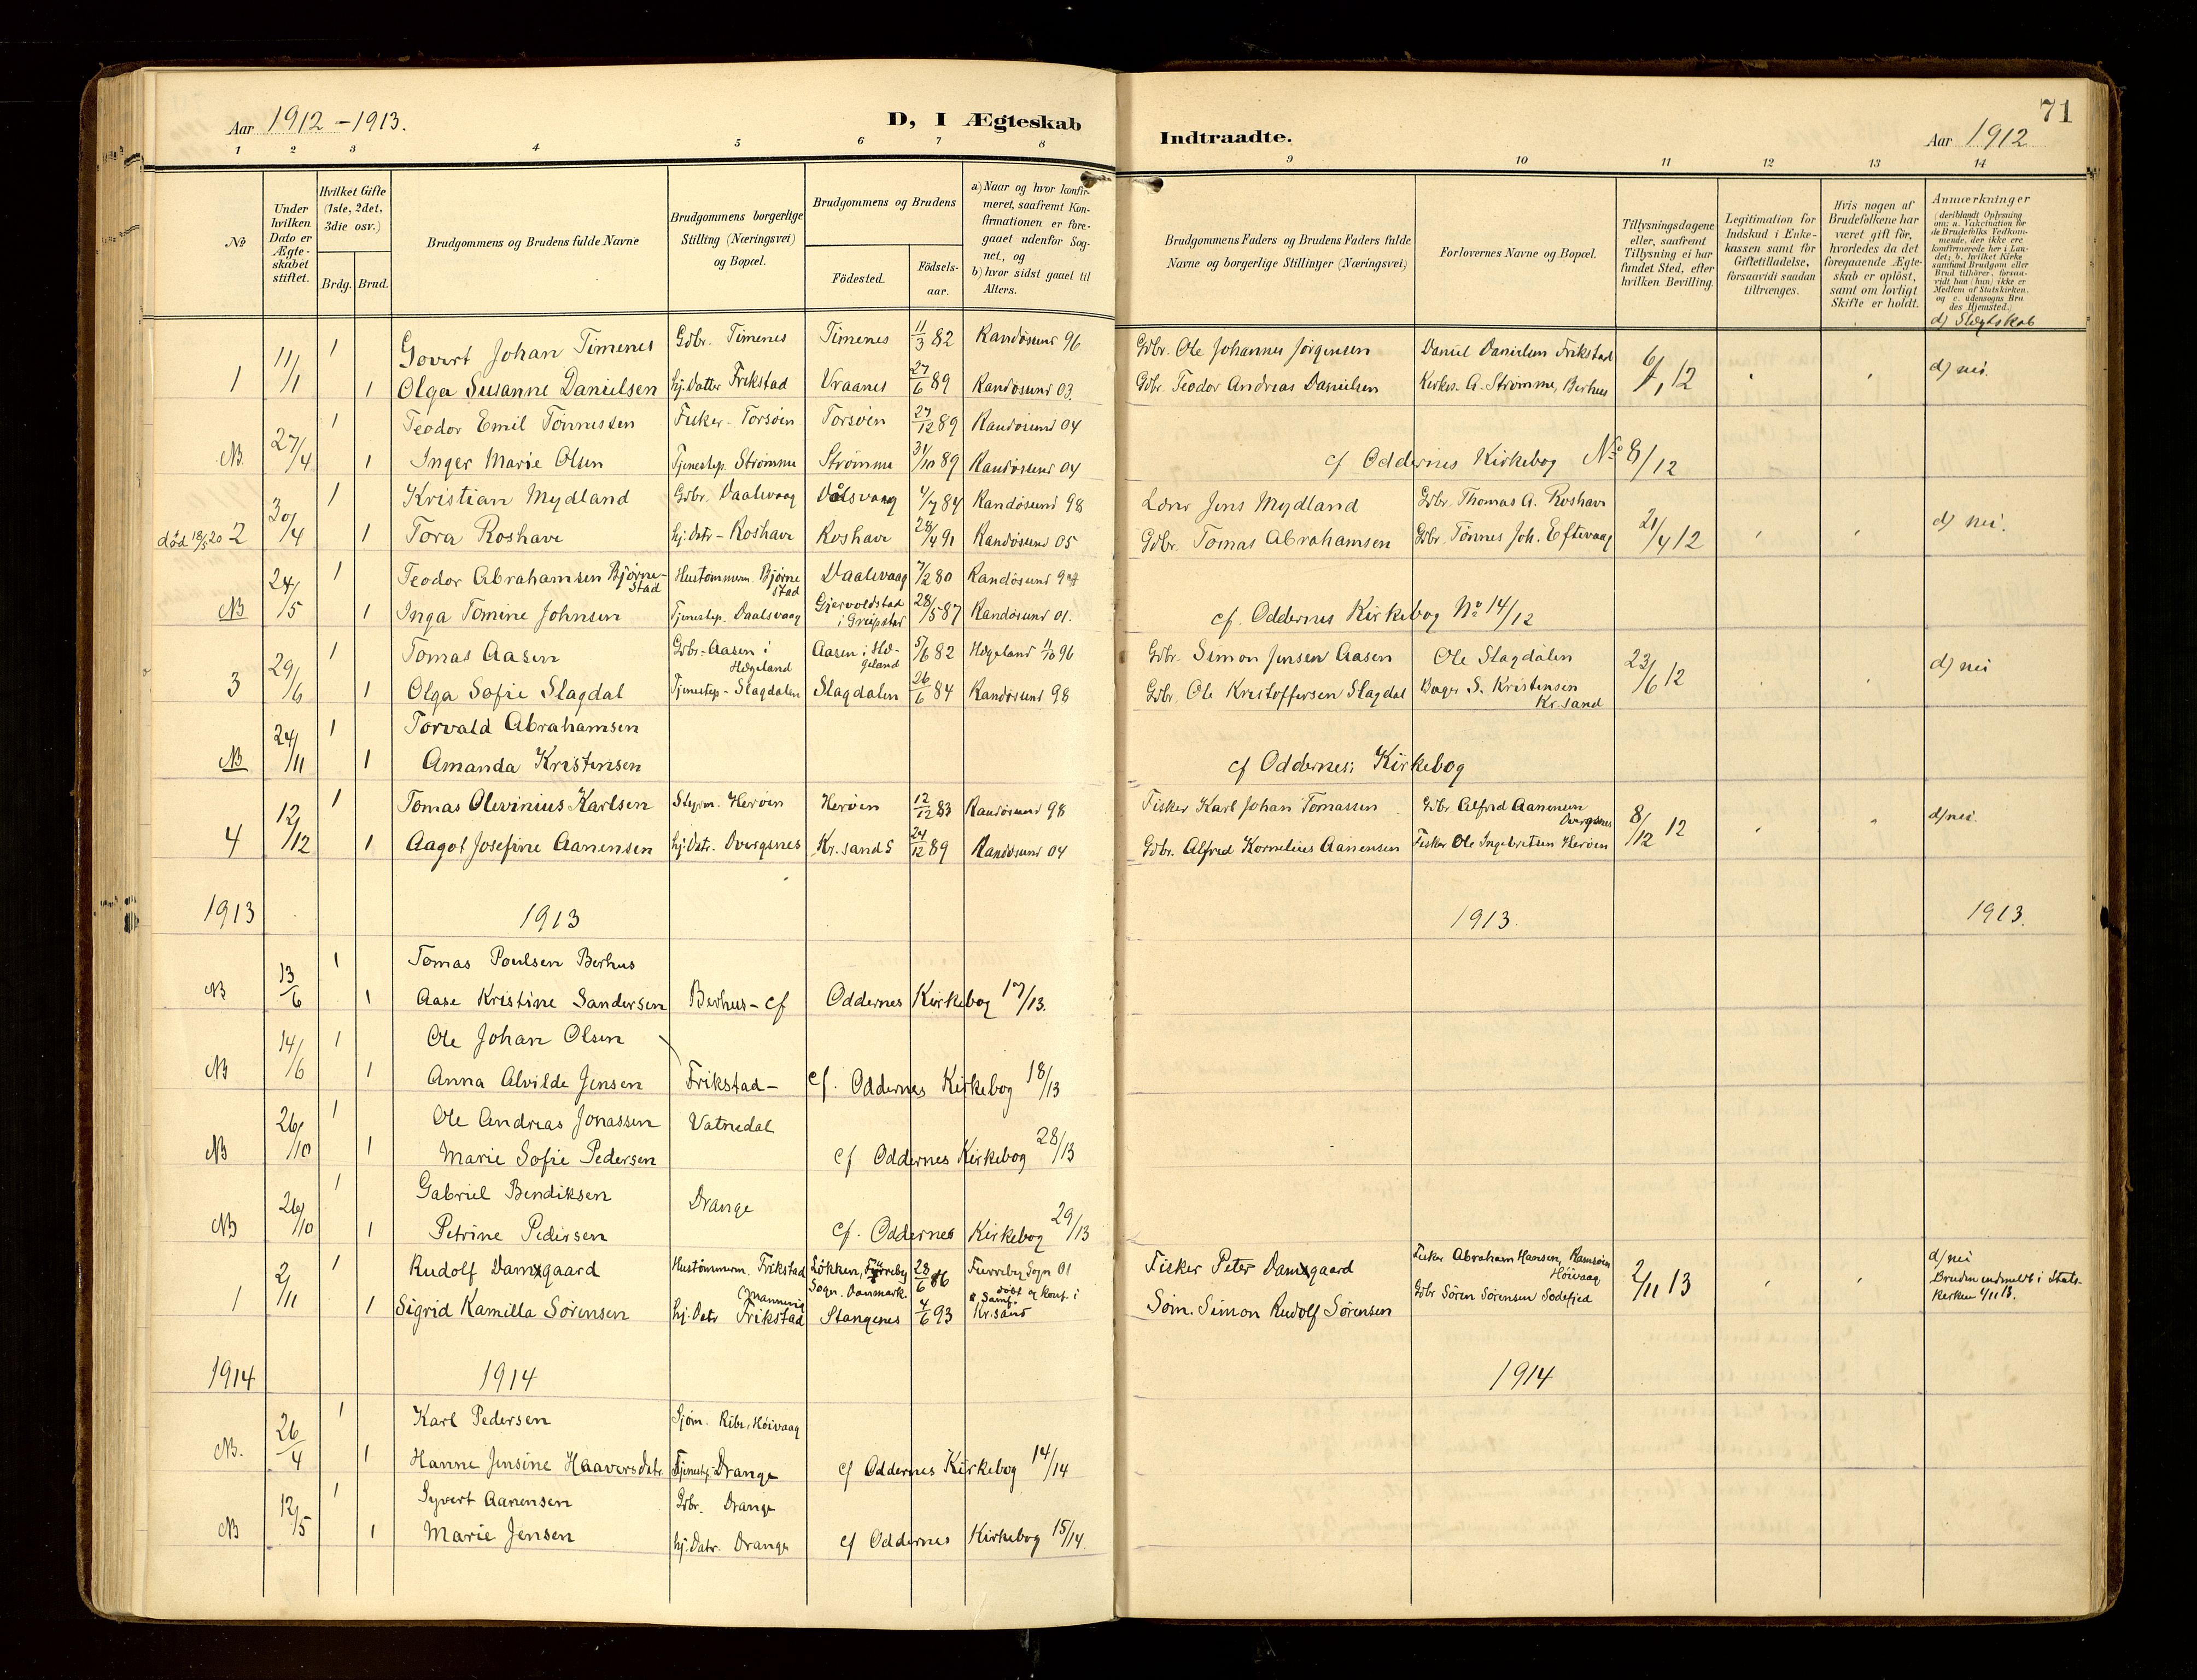 Aar 1912 - 1913.
D, I Ægteskab
Indtraadte.
71
Aar 1912
1 2 3 4 5 6 7 8 9 10 11 12 13 14
No
Under hvilken Dato er Ægteskabet stiftet.
Hvilket Gifte (1ste, 2det, 3die osv.)
Brdg. Brud.
Brudgommens og Brudens fulde Navne
Brudgommens borgerlige Stilling (Næringsvei) og Bopæl.
Brudgommens og Brudens
Fødested.
Fødsels-aar.
a) Naar og hvor konfirmeret, saafremt Konfirmationen er foregaaet udenfor Sognet, og
b) hvor sidst gaael til Alters.
Brudgommens Faders og Brudens Faders fulde Navne og borgerlige Stillinger (Næringsvei)
Forlovernes Navne og Bopæl.
Tillysningsdagene eller, saafremt Tillysning ei har fundet Sted, efter hvilken Bevilling.
Legitimation for Indskud i Enkekassen samt for Giftetilladelse, forsaavidt saadan tiltrænges.
Hvis nogen af Brudefolkene har været gift før, hvorledes da det foregaaende Ægteskab er opløst, samt om lovligt Skifte er holdt.
Anmerkninger
(deriblandt Oplysning om: a. Vakcination for de Brudefolks Vedkommende, der ikke ere konfirmerede her i Landet; b. hvilket Kirkesamfund Brudgom eller Brud tilhører, forsaavidt han (hun) ikke er Medlem af Statskirken. og c. udensogns Brudes Hjemsted.)
d) Slægtskab
11/1 1 Govert Johan Timenes Gdbr. Timenes Timenes 11/3 82 Randøsund 96 Gdbr. Ole Johannes Jørgensen Daniel Danielsen Frikstad 6/1 12 d) nei.
1 1 Olga Susanne Danielsen hj. Datter Frikstad Vraanes 27/6 89 Randøsund 03. Gdbr. Teodor Andreas Danielsen Kirkes. A. Strømme, Berhus
27/4 1 Teodor Emil Tønnessen Fisker - Torsøen Torsøen 27/12 89 Randøsund 04
NB 1 Inger Marie Olsen Tjenestep. Strømme Strømme 31/10 89 Randøsund 04 cf Oddernes Kirkebog No 8/12
30/4 1 Kristian Mydland Gdbr. Daalsvaag Dålsvaag 4/7 84 Randøsund 98 Lønr Jens Mydland Gdbr. Thomas A. Roshavn 21/4 12 d) nei.
død 18/5 20 2 1 Tora Roshavn hj. Datr - Roshavn Roshavn 28/4 91 Randøsund 05 Gdbr. Tomas Abrahamsen Gdbr. Tønnes Joh. Eftevaag
24/5 1 Teodor Abrahamsen Bjørnestad Hustømmerm. Bjørnestad Daalsvaag 7/2 80 Randøsund 94
NB 1 Inga Tomine Johnsen Tjenestep. Daalsvaag Gjervoldstad i Greipstad 28/5 87 Randøsund 01. cf. Oddernes Kirkebog No 14/12
29/6 1 Tomas Aasen Gdbr. - Aasen i Hægeland Aasen i Hægeland 5/6 82 Hægeland 11/10 96 Gdbr. Simon Jensen Aasen Ole Slagdalen 23/6 12 d) nei
3 1 Olga Sofie Slagdal Tjenestep - Slagdalen Slagdalen 26/6 84 Randøsund 98 Gdbr. Ole Kristoffersen Slagdal Bager S. Kristensen Kr. sand
24/11 1 Torvald Abrahamsen
NB 1 Amanda Kristensen cf Oddernes; Kirkebog
12/12 1 Tomas Olevinius Karlsen Styrm. Herøen Herøen 12/12 83 Randøsund 98 Fisker Karl Johan Tomassen Gdbr. Alfred Aanensen Dvergsnes 8/12 12 d) nei.
4 1 Aagot Josefine Aanensen hj. Datr. Dvergsnes Kr. sand S 24/12 89 Randøsund 04 Gdbr. Alfred Kornelius Aanensen Fisker Ole Ingebretsen Herøen
1913 1913 1913. 1913.
13/6 1 Tomas Poulsen Berhus
NB 1 Aase Kristine Sandersen Berhus - cf Oddernes Kirkebog 17/13.
14/6 1 Ole Johan Olsen
NB 1 Anna Alvilde Jensen Frikstad - cf. Oddernes Kirkebog 18/13
26/10 1 Ole Andreas Jonassen Vatnedal
NB 1 Marie Sofie Pedersen cf Oddernes Kirkebog 28/13
26/10 1 Gabriel Bendiksen Drange
NB 1 Petrine Pedersen cf. Oddernes Kirkebog 29/13
2/11 1 Rudolf Damsgaard Hustømmerm. Frikstad Løkken, Furreby Sogn. Danmark. 28/6 86 Furreby Sogn 01 Fisker Peter Damsgaard Fisker Abraham Hansen, Ramsøen Høivaag 2/11 13 d) nei
1 1 Sigrid Kamilla Sørensen hj. Datr Frikstad Stangenes 4/6 93 døbt og konf. i Kr.sand Søm. Simon Rudolf Sørensen Gdbr Søren Sørensen Sodefjed Bruden indmeldt i Statskirken 1/11 13.
1914 1914 1914
26/4 1 Karl Pedersen Sjøm. Ribe, Høivaag
NB. 1 Hanne Jensine Haaversdatr. Tjenestep. Drange cf Oddernes Kirkebog 14/14
12/5 1 Syvert Aanensen Gdbr. Drange
NB 1 Marie Jensen hj. Datr. Drange cf Oddernes Kirkebog 15/14.